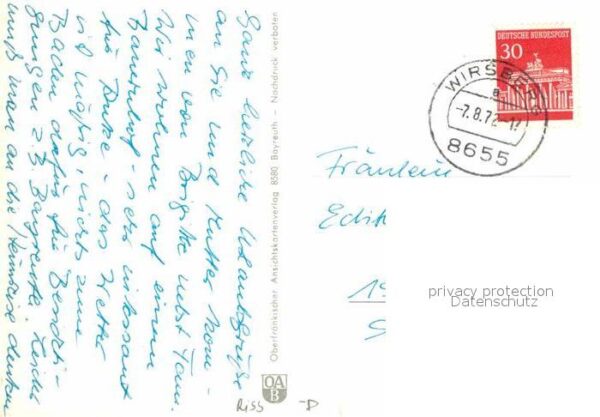 Ganz herzliche Urlaubsgrüße
an Sie und Mutter kom-
men von Brigitte nebst Fam.
Wir wohnen auf einem
Bauernhof - sehr interessant
für - das Wetter
ist mäßig, nichts zum
Baden dafür für Besichti-
gungen z.B. Bayreuth. Leider
muß man an die Heimreise denken
Oberfränkischer Ansichtskartenverlag 8580 Bayreuth - Nachdruck verboten
OA
B
DEUTSCHE BUNDESPOST
30
WIRSBERG
a
-7.8.72-17
8655
Fräulein
Edith
privacy protection
Datenschutz